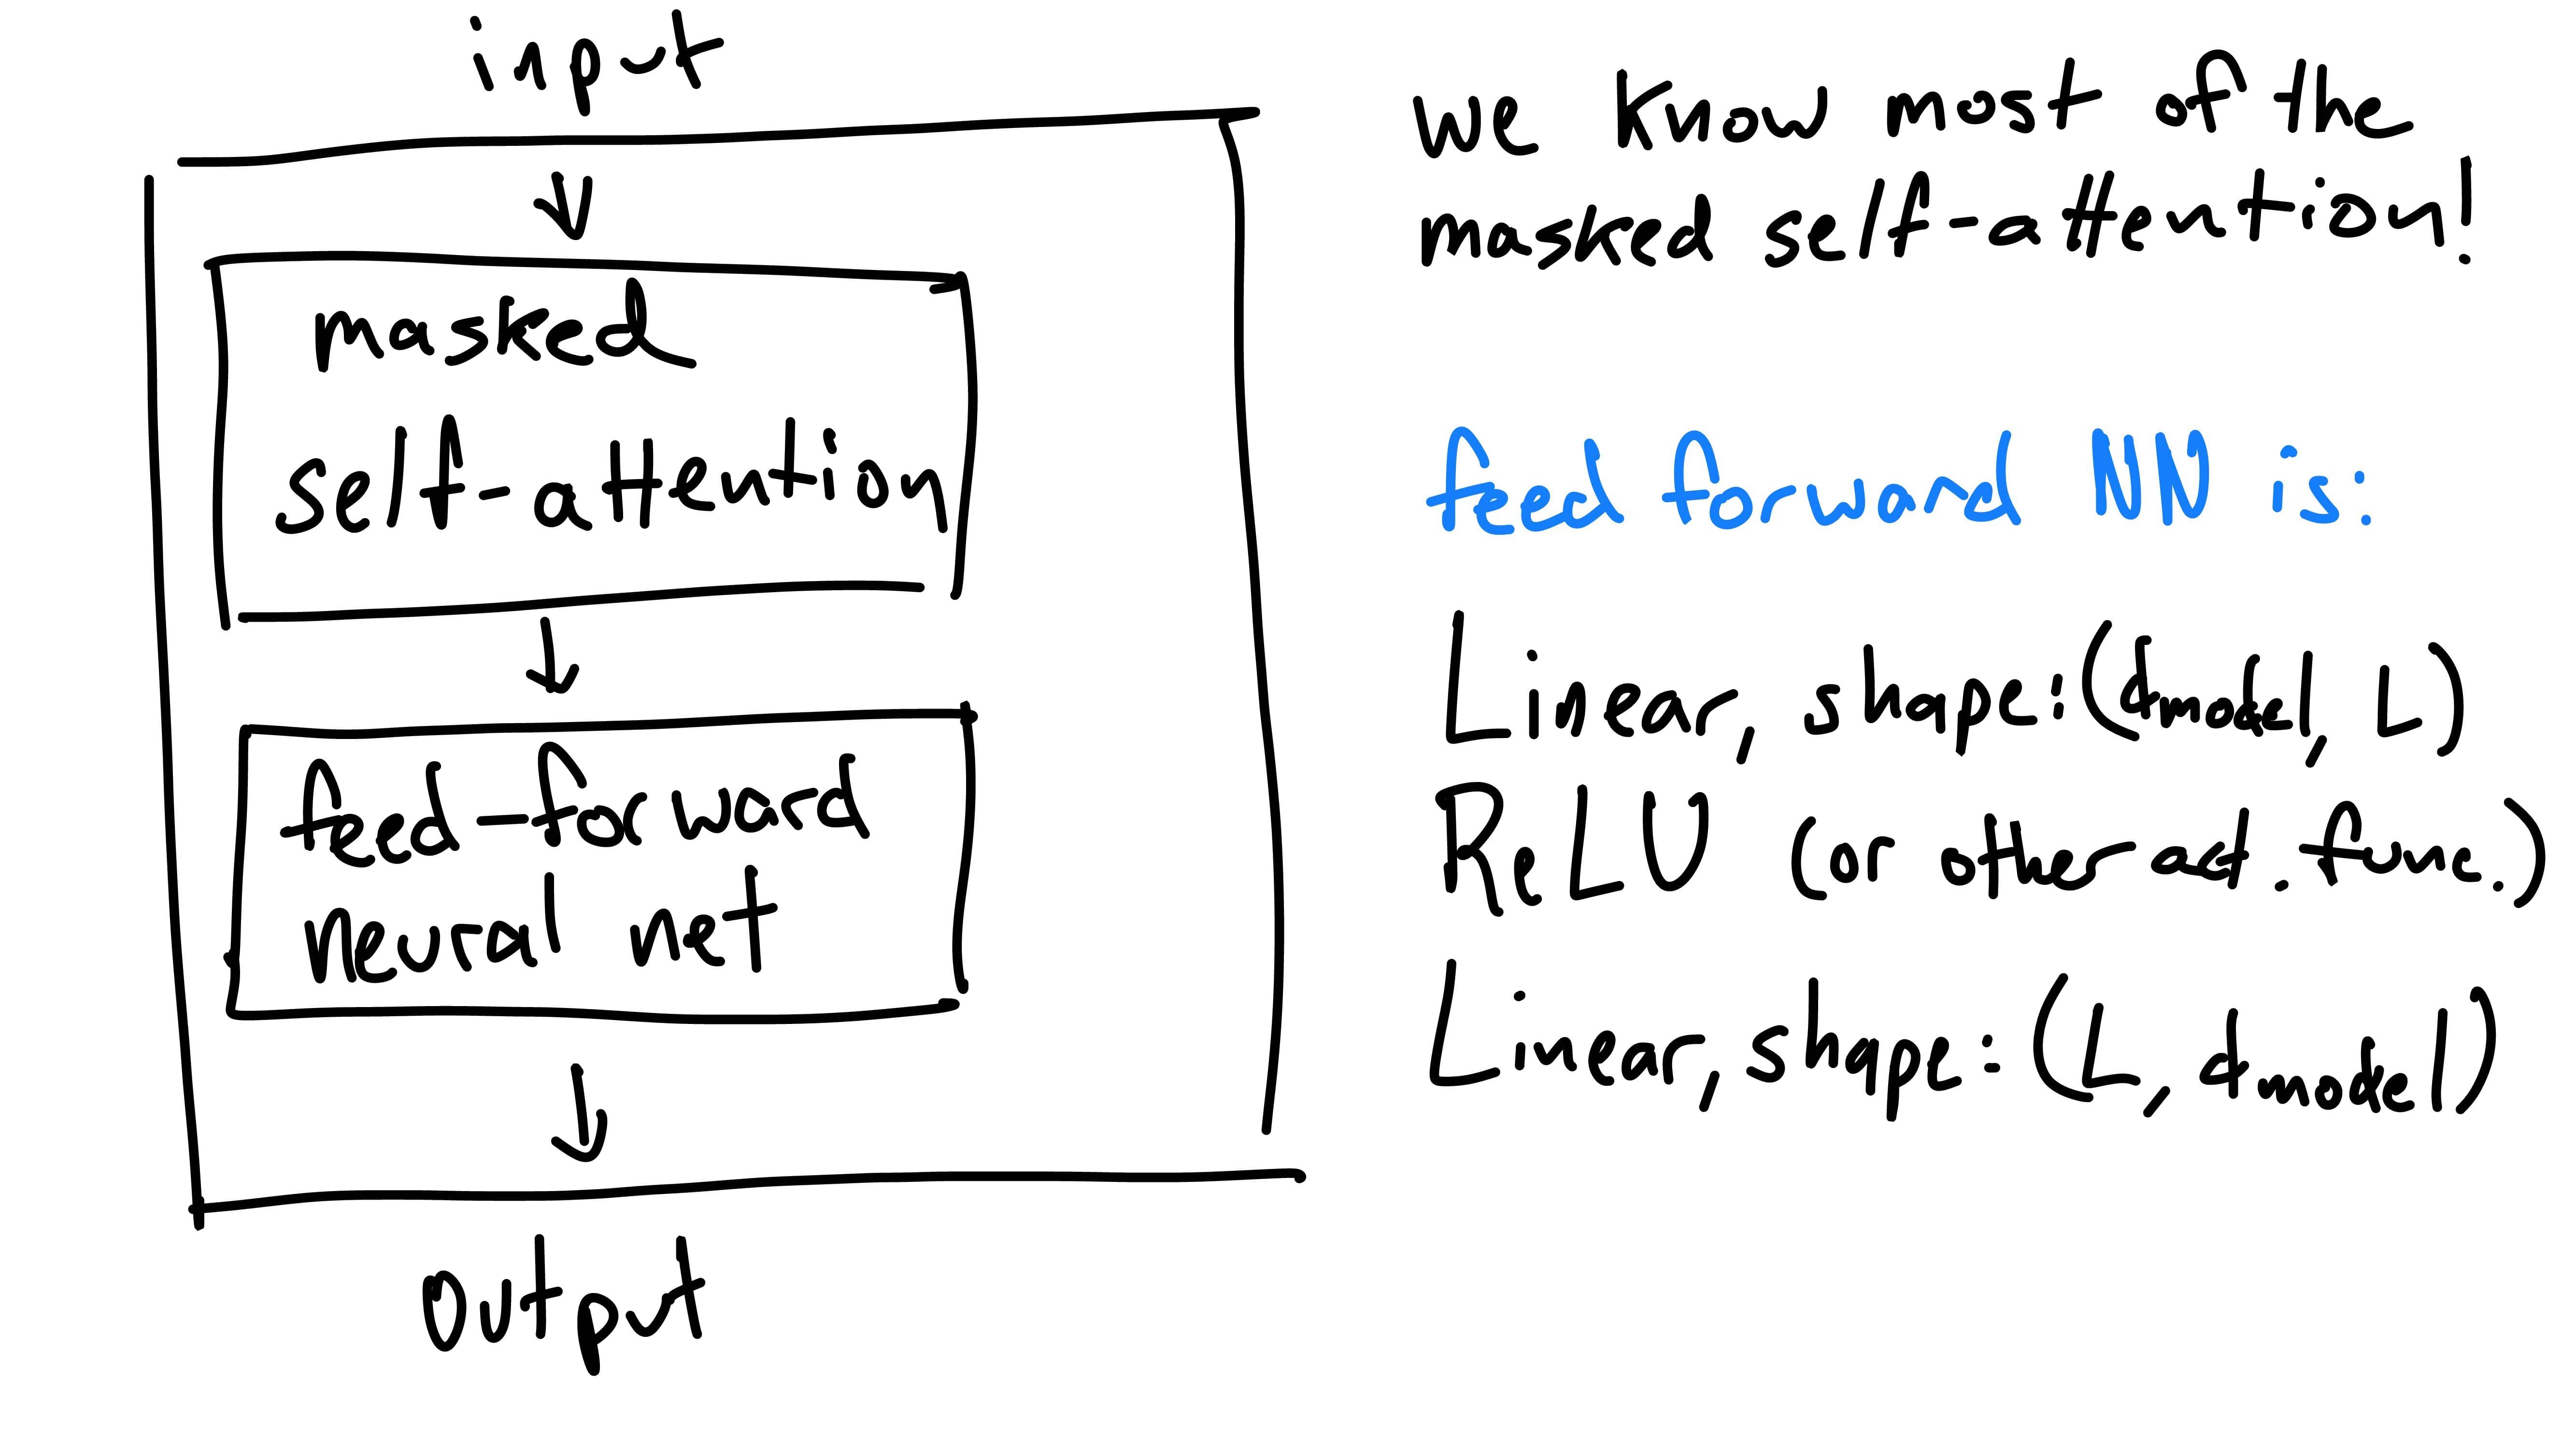 input
masked
self-attention
feed-forward
neural net
output
we know most of the
masked self-attention!
feed forward NN is:
Linear, shape: (dmodel, L)
ReLU (or other act. func.)
Linear, shape: (L, dmodel)